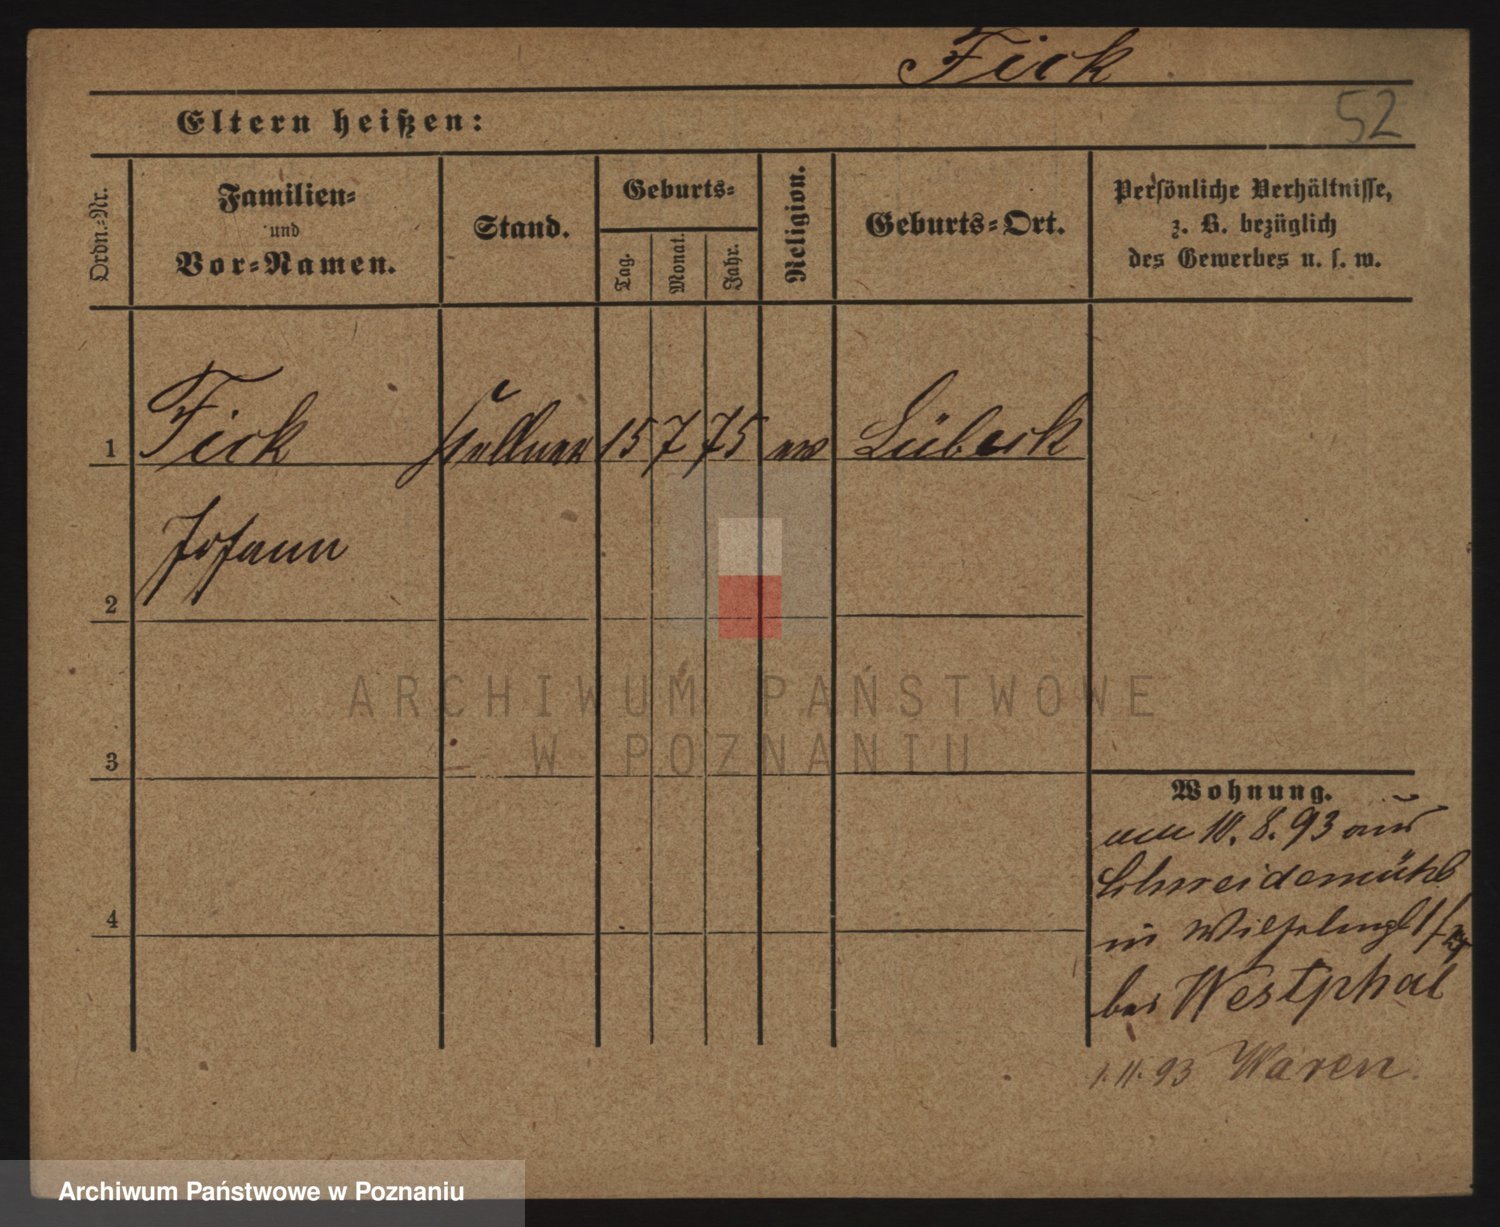 Fick
52
Eltern heißen:
Ordn.-Nr.
Familien-
und
Vor-Namen.
Stand.
Geburts-
Tag.
Monat.
Jahr.
Religion.
Geburts-Ort.
Persönliche Verhältnisse,
z. B. bezüglich
des Gewerbes u. s. w.
1 Fick Kellner 15 7 75 ev Lübeck
Johann
2
ARCHIWUM PAŃSTWOWE
W POZNANIU
3
4
Wohnung.
10. 8. 93 aus
Schneidemühl
in Wilhelmspl 1/
bei Westphal
1.11.93 Waren
Archiwum Państwowe w Poznaniu